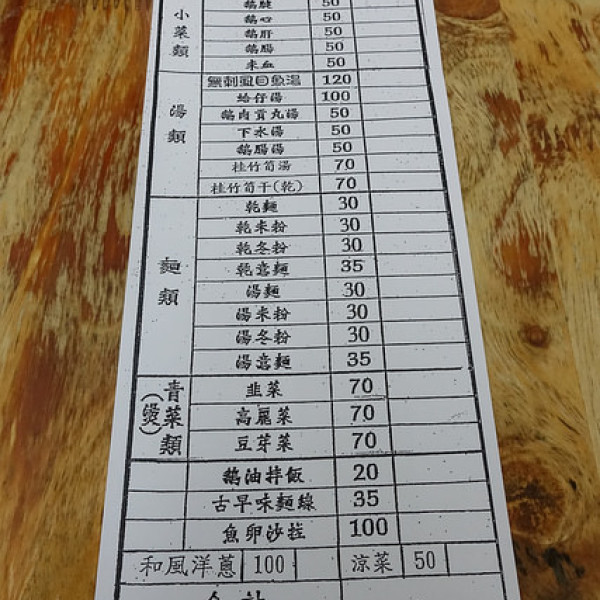 小菜類
鵝腱 50
鵝心 50
鵝肝 50
鵝腸 50
米血 50
湯類
無刺虱目魚湯 120
蛤仔湯 100
鵝肉貢丸湯 50
下水湯 50
鵝腸湯 50
桂竹筍湯 70
桂竹筍干(乾) 70
麵類
乾麵 30
乾米粉 30
乾冬粉 30
乾意麵 35
湯麵 30
湯米粉 30
湯冬粉 30
湯意麵 35
青菜類(燙)
韭菜 70
高麗菜 70
豆芽菜 70
鵝油拌飯 20
古早味麵線 35
魚卵沙拉 100
和風洋蔥 100 涼菜 50